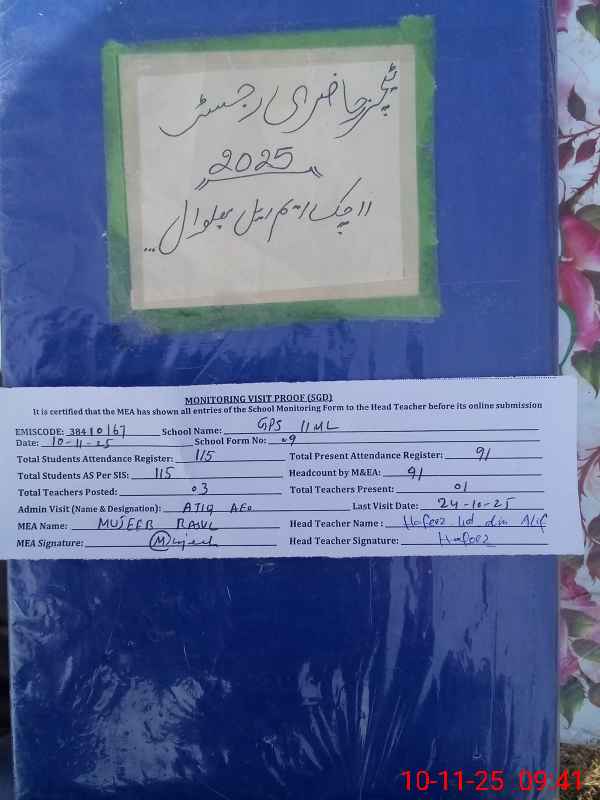 ٹیچرز حاضری رجسٹر
2025
11 چک ایم ایل بھلوال
MONITORING VISIT PROOF (SGD)
It is certified that the MEA has shown all entries of the School Monitoring Form to the Head Teacher before its online submission
EMISCODE: 38410167 School Name: GPS 11ML
Date: 10-11-25 School Form No: 09
Total Students Attendance Register: 115 Total Present Attendance Register: 91
Total Students AS Per SIS: 115 Headcount by M&EA: 91
Total Teachers Posted: 03 Total Teachers Present: 01
Admin Visit (Name & Designation): ATIQ AEO Last Visit Date: 24-10-25
MEA Name: MUJEEB RASUL Head Teacher Name: Hafeez Ud din
MEA Signature: Mujeeb Head Teacher Signature: Hafeez
10-11-25 09:41